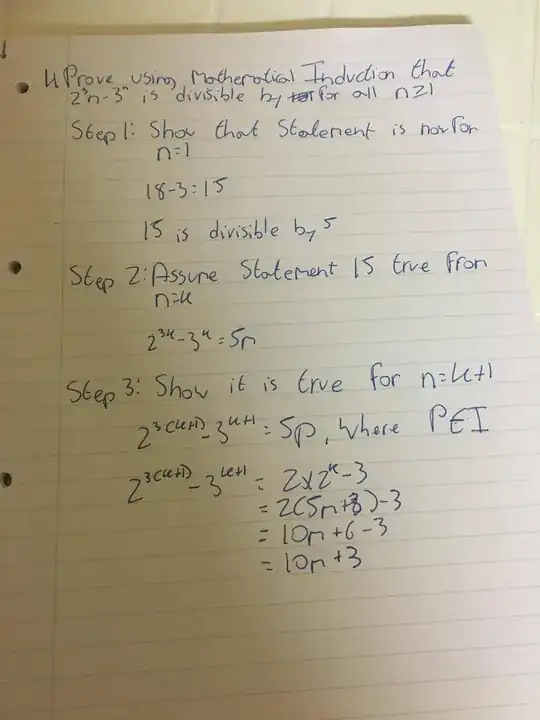 4 Prove using Mathematical Induction that
2³n-3ⁿ is divisible by for all n≥1
Step 1: Show that Statement is for
n=1
18-3=15
15 is divisible by 5
Step 2: Assume Statement is true from
n=k
2³ᵏ-3ᵏ=5m
Step 3: Show it is true for n=k+1
2³⁽ᵏ⁺¹⁾-3ᵏ⁺¹=5p, where P∈I
2³⁽ᵏ⁺¹⁾-3ᵏ⁺¹ = 2x2ᵏ-3
= 2(5m+3)-3
= 10m+6-3
= 10m+3